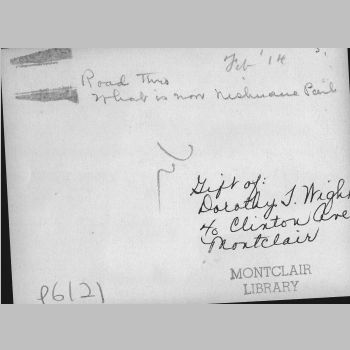 Feb '14
Road Thro
What is now Nishuane Park
Gift of:
Dorothy T. Wight
40 Clinton Ave
Montclair
MONTCLAIR
LIBRARY
P6121